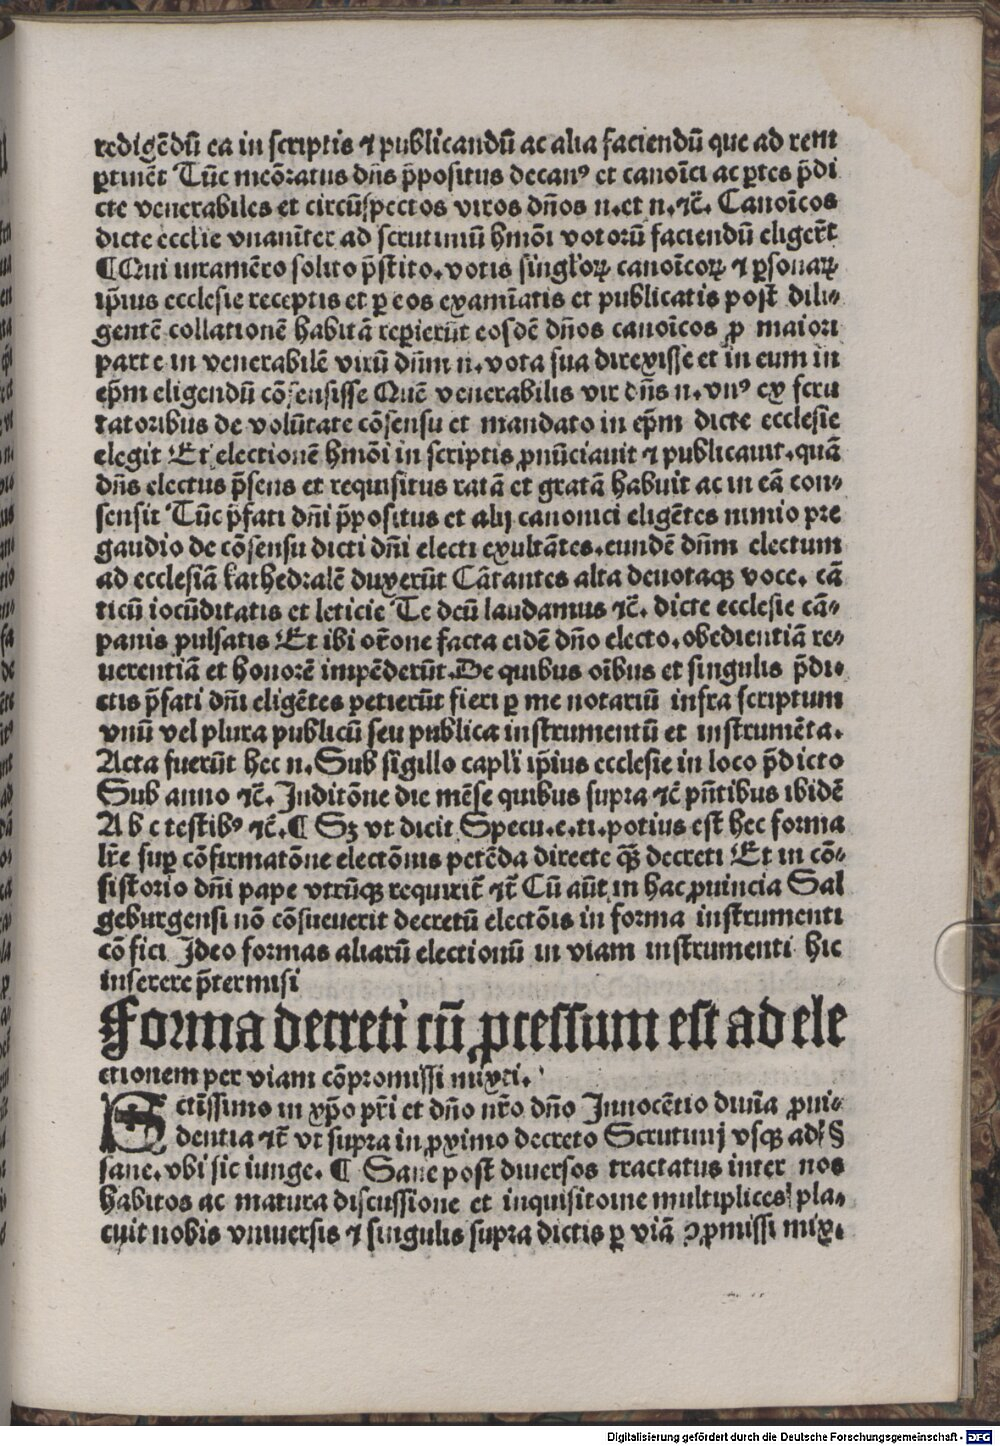 redigēdū ea in scriptis ⁊ publicandū ac alia faciendū que ad rem
ꝑtinēt Tūc meōratus dn̄s p̄positus decanꝰ et canoīci ac ꝑtes p̄di
cte venerabiles et circūspectos viros dn̄os n. et n. ⁊c̄. Canoīcos
dicte ecclie vnanīter ad scrutiniū hmōi votorū faciendū eliger̄t
¶Qui iuramēto solito p̄stito. votis singl'oꝝ canoīcoꝝ ⁊ ꝑsonaꝝ
ip̄ius ecclesie receptis et ꝑ eos examīatis et publicatis post dili⸗
gentē collationē habitā reperierūt eosdē dn̄os canoīcos ꝓ maiori
parte in venerabilē virū dn̄m n. vota sua direxisse et in eum in
ep̄m eligendū cōsensisse Quē venerabilis vir dn̄s n. vnꝰ ex scru
tatoribus de volūtate cōsensu et mandato in ep̄m dicte ecclesie
elegit Et electionē hmōi in scriptis ꝓnūciauit ⁊ publicauit. quā
dn̄s electus p̄sens et requisitus ratā et gratā habuit ac in eā con⸗
sensit Tūc p̄fati dn̄i p̄positus et alij canonici eligētes nimio pre
gaudio de cōsensu dicti dn̄i electi exultātes. eundē dn̄m electum
ad ecclesiā kathedralē duxerūt Cātantes alta deuotaqꝫ voce. cā
ticū iocūditatis et leticie Te deū laudamus ⁊c̄. dicte ecclesie cā⸗
panis pulsatis Et ibi or̄one facta eidē dn̄o electo. obedientiā re⸗
uerentiā et honorē impēderūt. De quibus oībus et singulis p̄di⸗
ctis p̄fati dn̄i eligētes petierūt fieri ꝑ me notariū infra scriptum
vnū vel plura publicū seu publica instrumentū et instrumēta.
Acta fuerūt hec n. Sub sigillo capl'i ip̄ius ecclesie in loco p̄dicto
Sub anno ⁊c̄. Inditōne die mēse quibus supra ⁊c̄ pn̄tibus ibidē
A b c testibꝰ ⁊c̄. ¶ Sꝫ vt dicit Specu. e. ti. potius est hec forma
lr̄e suꝑ cōfirmatōne electōnis petēda directe qꝫ̄ decreti Et in cō⸗
sistorio dn̄i pape vtrūqꝫ requirit̄ ⁊c̄ Cū aūt in hac ꝓuincia Sal
geburgensi nō cōsueuerit decretū electōis in forma instrumenti
cōfici Ideo formas aliarū electionū in viam instrumenti hic
inserere p̄termisi
Forma decreti cū ꝓcessum est ad ele
ctionem per viam cōpromissi mixti.
Sctīssimo in xp̄o pr̄i et dn̄o nr̄o dn̄o Innocētio diuīa ꝓui⸗
dentia ⁊c̄ vt supra in ꝓximo decreto Scrutinij vsqꝫ ad §
sane. vbi sic iunge. ¶ Sane post diuersos tractatus inter nos
habitos ac matura discussione et inquisitoine multiplices pla⸗
cuit nobis vniuersis ⁊ singulis supra dictis ꝑ viā ꝯꝓmissi mix⸗
Digitalisierung gefördert durch die Deutsche Forschungsgemeinschaft - DFG